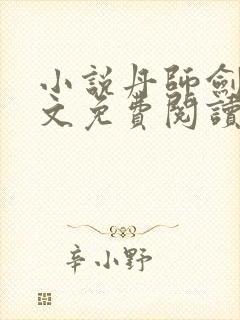 小說丹師劍
文免費閱讀
辛小野